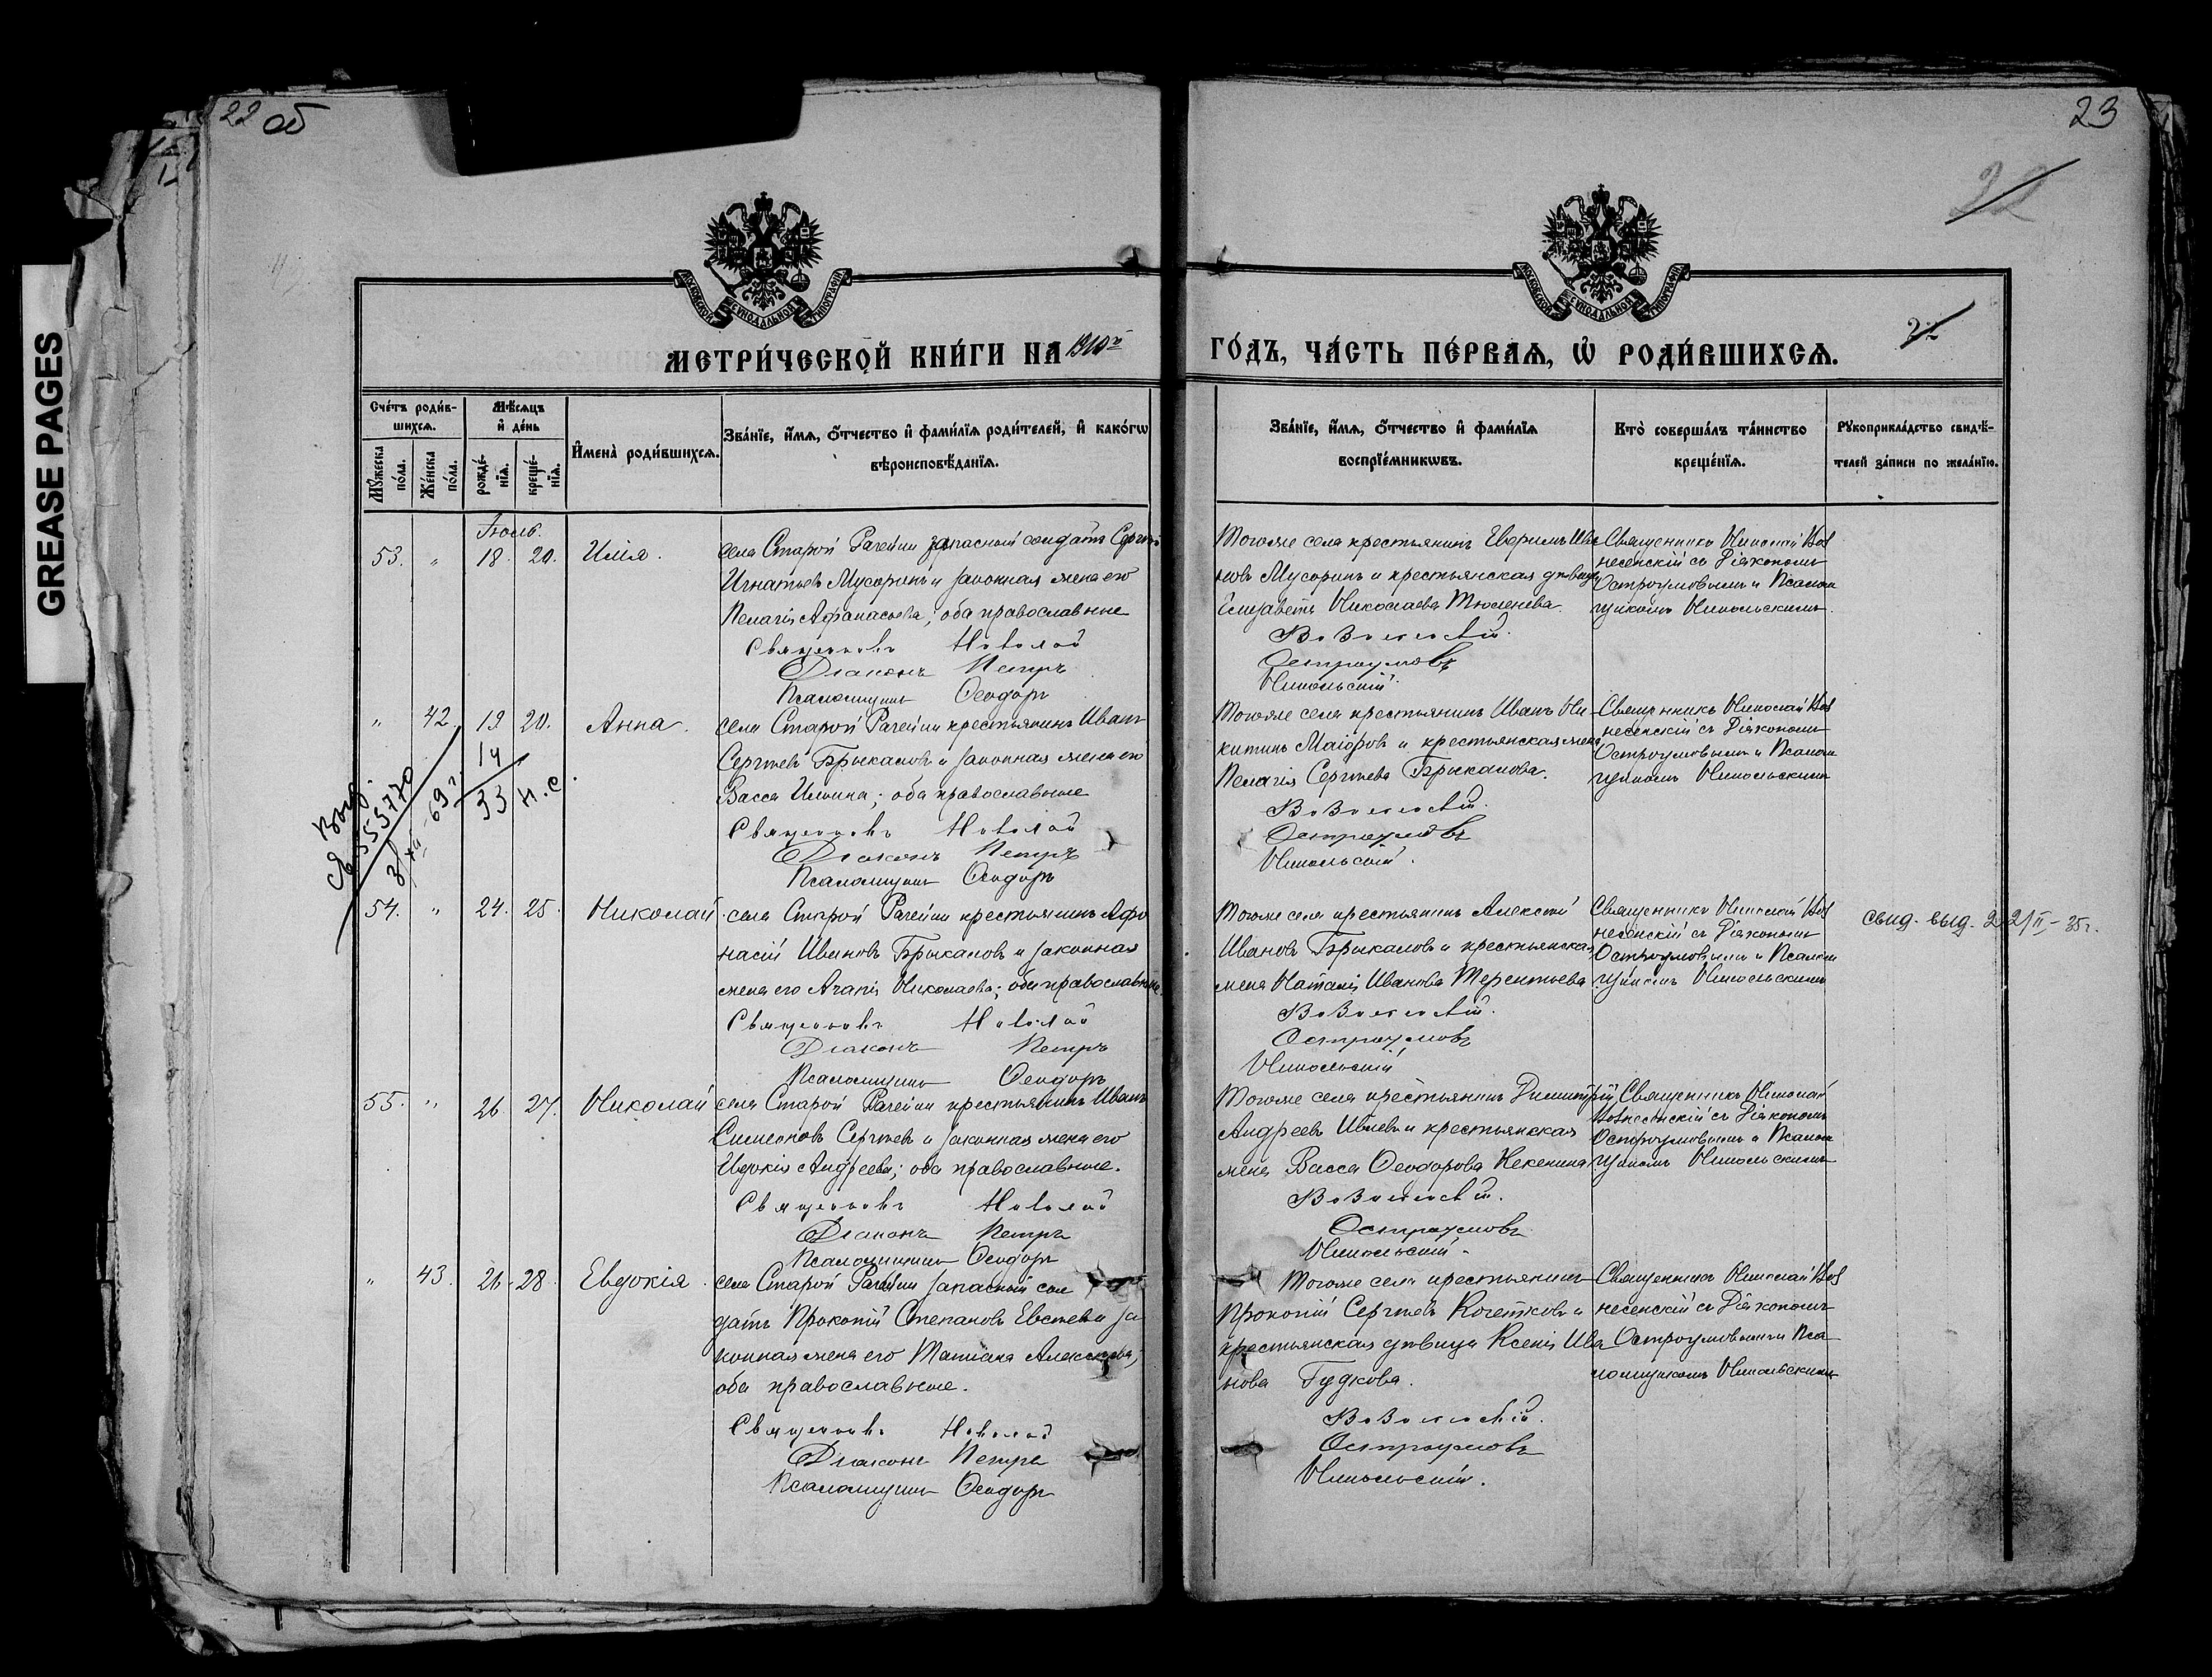 22 об
23
22
GREASE PAGES
МОСКОВСКОЙ СѴНОДАЛЬНОЙ ТИПОГРАФІИ
МОСКОВСКОЙ СѴНОДАЛЬНОЙ ТИПОГРАФІИ
МЕТРИ́ЧЕСКОЙ КНИ́ГИ НА 1910й
ГО́ДЪ, ЧА́СТЬ ПЕ́РВАѦ, Ѡ҆ РОДИ́ВШИХСѦ.
22
Сче́тъ роди́в-
шихсѧ.
Мꙋ́жеска по́ла.
Же́нска по́ла.
Мѣ́сѧцъ
и҆ де́нь
рожде́-нїѧ.
креще́-нїѧ.
И҆мена̀ роди́вшихсѧ.
Зва́нїе, и҆́мѧ, ѻ҆́тчество и҆ фами́лїѧ роди́телей, и҆ како́гѡ
вѣроисповѣ́данїѧ.
Зва́нїе, и҆́мѧ, ѻ҆́тчество и҆ фами́лїѧ
воспрїе́мникѡвъ.
Кто̀ соверша́лъ та́инство
креще́нїѧ.
Рꙋкоприкла́дство свидѣ́-
телей за́писи по жела́нїю.
Іюль.
53. " 18. 20. Илія.
села Старой Рачейки запасный солдатъ Сергѣй
Игнатьевъ Мусоринъ и законная жена его
Пелагія Афанасьева; оба православные
Священникъ Николай
Діаконъ Петръ
Псаломщикъ Ѳеодоръ
Тогоже села крестьянинъ Ива
новъ Мусоринъ и крестьянская дѣвица
Елизавета Николаева Тюленева.
Вознесенскій.
Остроумовъ
Никольскій.
Священникъ Николай Воз
несенскій съ Діякономъ
Остроумовымъ и Псалом
щикомъ Никольскимъ.
" 42. 19 20. Анна.
села Старой Рачейки крестьянинъ Иванъ
Сергѣевъ Брыкаловъ и законная жена его
Васса Ильина; оба православные
Священникъ Николай
Діаконъ Петръ
Псаломщикъ Ѳеодоръ
Тогоже села крестьянинъ Иванъ Ни-
китинъ Маіоровъ и крестьянская жена
Пелагія Сергѣева Брыкалова.
Вознесенскій.
Остроумовъ
Никольскій.
Священникъ Николай Воз
несенскій съ Діякономъ
Остроумовымъ и Псалом
щикомъ Никольскимъ
выд.
553770
3/XII-69г.
14
33 н.с.
54. " 24. 25. Николай
села Старой Рачейки крестьянинъ Афа
насій Ивановъ Брыкаловъ и законная
жена его Агапія Николаева; оба православные.
Священникъ Николай
Діаконъ Петръ
Псаломщикъ Ѳеодоръ
Тогоже села крестьянинъ Алексѣй
Ивановъ Брыкаловъ и крестьянская
жена Наталія Иванова Терентьева
Вознесенскій.
Остроумовъ
Никольскій
Священникъ Николай Воз
несенскій съ Діякономъ
Остроумовымъ и Псалом
щикомъ Никольскимъ
свид. выд. 22/II-35г.
55. " 26. 27. Николай
села Старой Рачейки крестьянинъ Иванъ
Симеоновъ Сергѣевъ и законная жена его
Евдокія Андреева; оба православные.
Священникъ Николай
Діаконъ Петръ
Псаломщикъ Ѳеодоръ
Тогоже села крестьянинъ Димитрій
Андреевъ Ивлевъ и крестьянская
жена Васса Ѳеодорова Кекенина
Вознесенскій.
Остроумовъ
Никольскій.
Священникъ Николай
Вознесенскій съ Діякономъ
Остроумовымъ и Псалом
щикомъ Никольскимъ
" 43. 26. 28. Евдокія.
села Старой Рачейки запасный сол
датъ Прокопій Степановъ Евстевъ и за
конная жена его Татіана Алексѣева;
оба православные.
Священникъ Николай
Діаконъ Петръ
Псаломщикъ Ѳеодоръ
Тогоже села крестьянинъ
Прокопій Сергѣевъ Кочетковъ и
крестьянская дѣвица Ксенія Ива
нова Гудкова.
Вознесенскій.
Остроумовъ
Никольскій.
Священникъ Николай Воз
несенскій съ Діякономъ
Остроумовымъ и Пса
ломщикомъ Никольскимъ